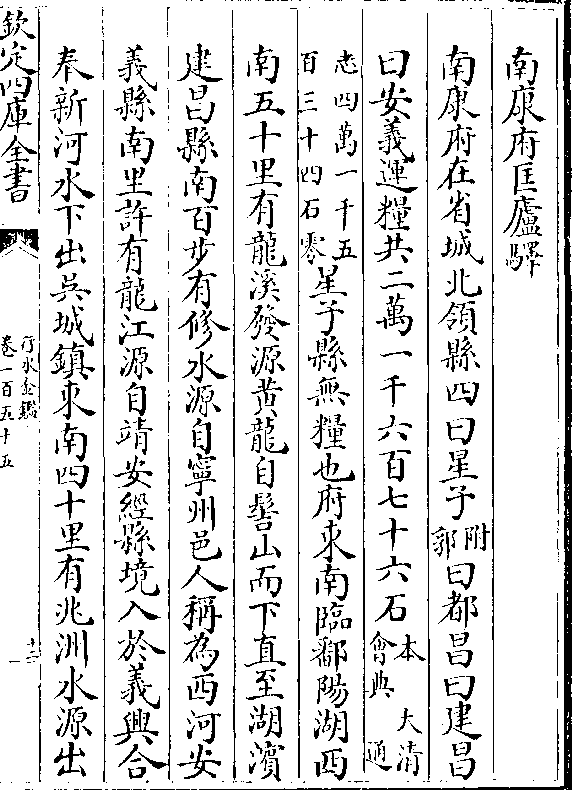 南康府匡廬驛
南康府在省城北領縣四曰星子附郭曰都昌曰建昌
曰安義運糧共二萬一千六百七十六石本大清會典通
志四萬一千五百三十四石零星子縣無糧也府東南臨鄱陽湖西
南五十里有龍溪發源黃龍自髻山而下直至湖濱
建昌縣南百步有修水源自寧州邑人稱為西河安
義縣南里許有龍江源自靖安經縣境入於義興合
奉新河水下出吳城鎮東南四十里有兆洲水源出
欽定四庫全書
行水金鑑
卷一百五十五